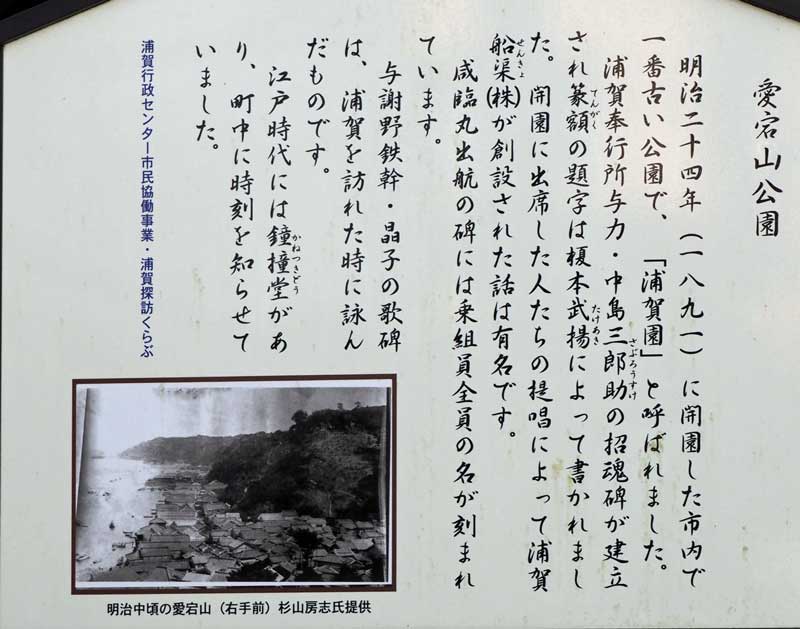 愛宕山公園
明治二十四年（一八九一）に開園した市内で
一番古い公園で、「浦賀園」と呼ばれました。
浦賀奉行所与力・中島三郎助の招魂碑が建立
さぶろうすけ
され篆額の題字は榎本武揚によって書かれまし
てんがく
たけあき
た。開園に出席した人たちの提唱によって浦賀
船渠(株)が創設された話は有名です。
せんきょ
咸臨丸出航の碑には乗組員全員の名が刻まれ
ています。
与謝野鉄幹・晶子の歌碑
は、浦賀を訪れた時に詠ん
だものです。
江戸時代には鐘撞堂があ
かねつきどう
り、町中に時刻を知らせて
いました。
浦賀行政センター市民協働事業・浦賀探訪くらぶ
明治中頃の愛宕山（右手前）杉山房志氏提供